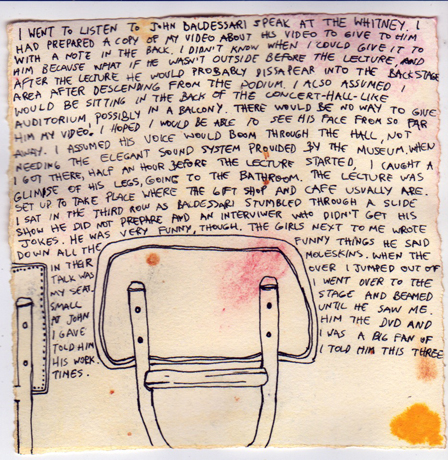 I WENT TO LISTEN TO JOHN BALDESSARI SPEAK AT THE WHITNEY. I
HAD PREPARED A COPY OF MY VIDEO ABOUT HIS VIDEO TO GIVE TO HIM
WITH A NOTE IN THE BACK. I DIDN'T KNOW WHEN I COULD GIVE IT TO
HIM BECAUSE WHAT IF HE WASN'T OUTSIDE BEFORE THE LECTURE, AND
AFTER THE LECTURE HE WOULD PROBABLY DISSAPEAR INTO THE BACKSTAGE
AREA AFTER DESCENDING FROM THE PODIUM. I ALSO ASSUMED I
WOULD BE SITTING IN THE BACK OF THE CONCERT-HALL-LIKE
AUDITORIUM, POSSIBLY IN A BALLCONY. THERE WOULD BE NO WAY TO GIVE
HIM MY VIDEO. I HOPED I WOULD BE ABLE TO SEE HIS FACE FROM SO FAR
AWAY. I ASSUMED HIS VOICE WOULD BOOM THROUGH THE HALL, NOT
NEEDING THE ELEGANT SOUND SYSTEM PROVIDED BY THE MUSEUM. WHEN
I GOT THERE, HALF AN HOUR BEFORE THE LECTURE STARTED, I CAUGHT A
GLIMPSE OF HIS LEGS, GOING TO THE BATHROOM. THE LECTURE WAS
SET UP TO TAKE PLACE WHERE THE GIFT SHOP AND CAFE USUALLY ARE.
I SAT IN THE THIRD ROW AS BALDESSARI STUMBLED THROUGH A SLIDE
SHOW HE DID NOT PREPARE AND AN INTERVIWER WHO DIDN'T GET HIS
JOKES. HE WAS VERY FUNNY, THOUGH. THE GIRLS NEXT TO ME WROTE
DOWN ALL THE FUNNY THINGS HE SAID
IN THEIR MOLESKINS. WHEN THE
TALK WAS OVER I JUMPED OUT OF
MY SEAT. I WENT OVER TO THE
SMALL STAGE AND BEAMED
AT JOHN UNTIL HE SAW ME.
I GAVE HIM THE DVD AND
TOLD HIM I WAS A BIG FAN OF
HIS WORK. I TOLD HIM THIS THREE
TIMES.